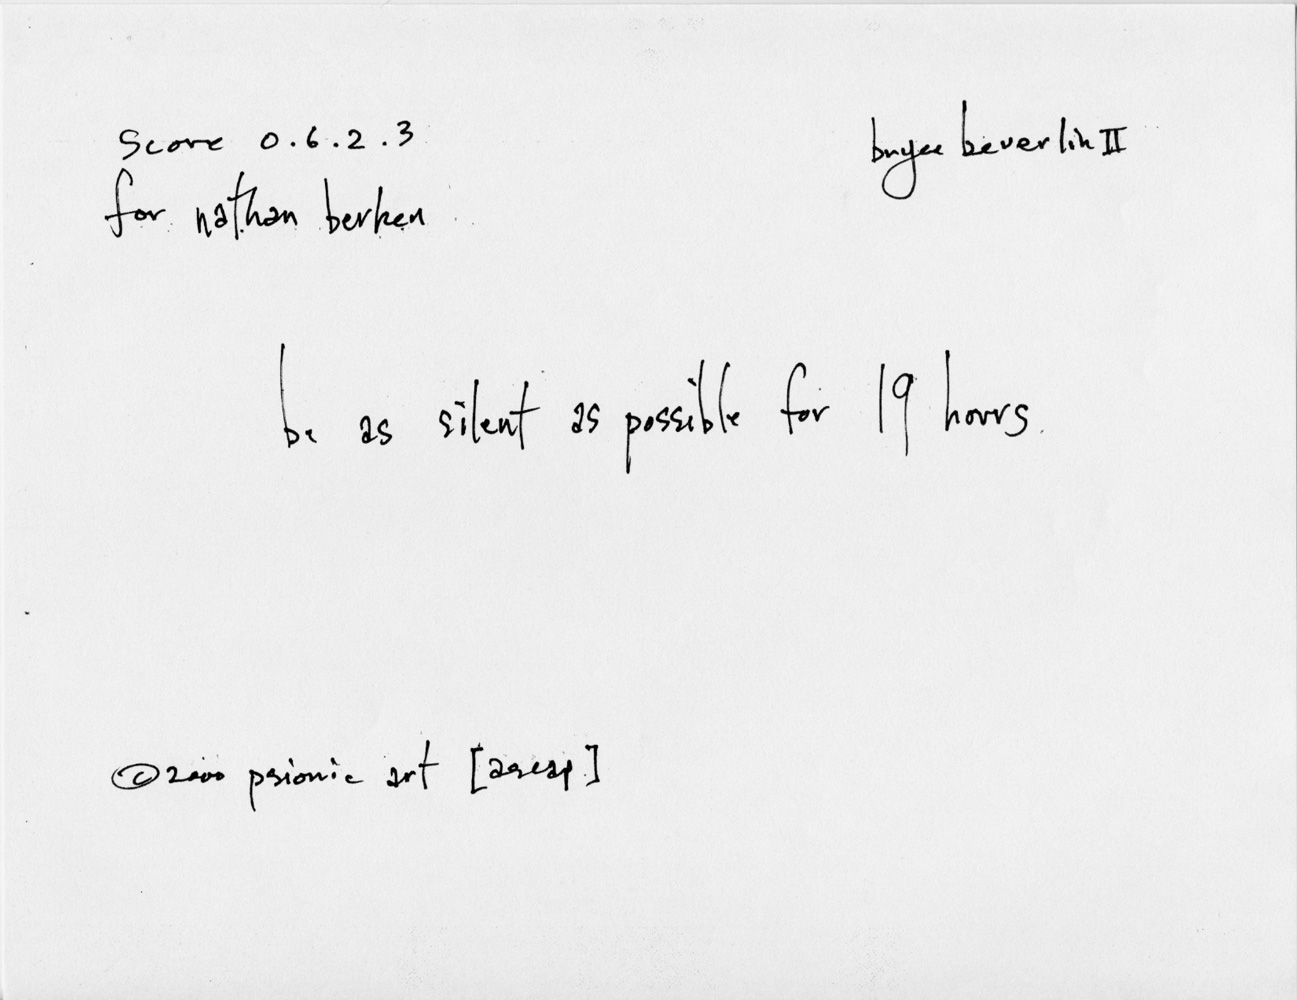 Score 0.6.2.3
bryce beverlin II
for nathan berken
be as silent as possible for 19 hours.
©2000 psionic art [ascap]